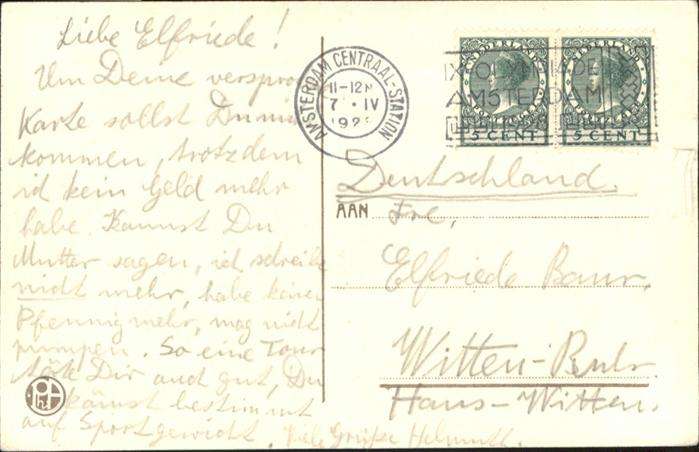 Liebe Elfriede!
Um Deine verspro
Karte sollst Du nu
kommen, trotzdem
ich kein Geld mehr
habe. Kannst Du
Mutter sagen, ich schreibe
nicht mehr, habe keinen
Pfennig mehr, mag nicht
pumpen. So eine Tour
Dir auch gut, Du
kämst bestimmt
auf Sportgewicht. Viele Grüße Helmuth.
AMSTERDAM CENTRAAL-STATION
11-12
7 · IV
192
NEDERLAND
5 CENT
NEDERLAND
5 CENT
AMSTERDAM
Deutschland
AAN
Frl,
Elfriede Baur,
Witten-Ruhr.
Haus-Witten.